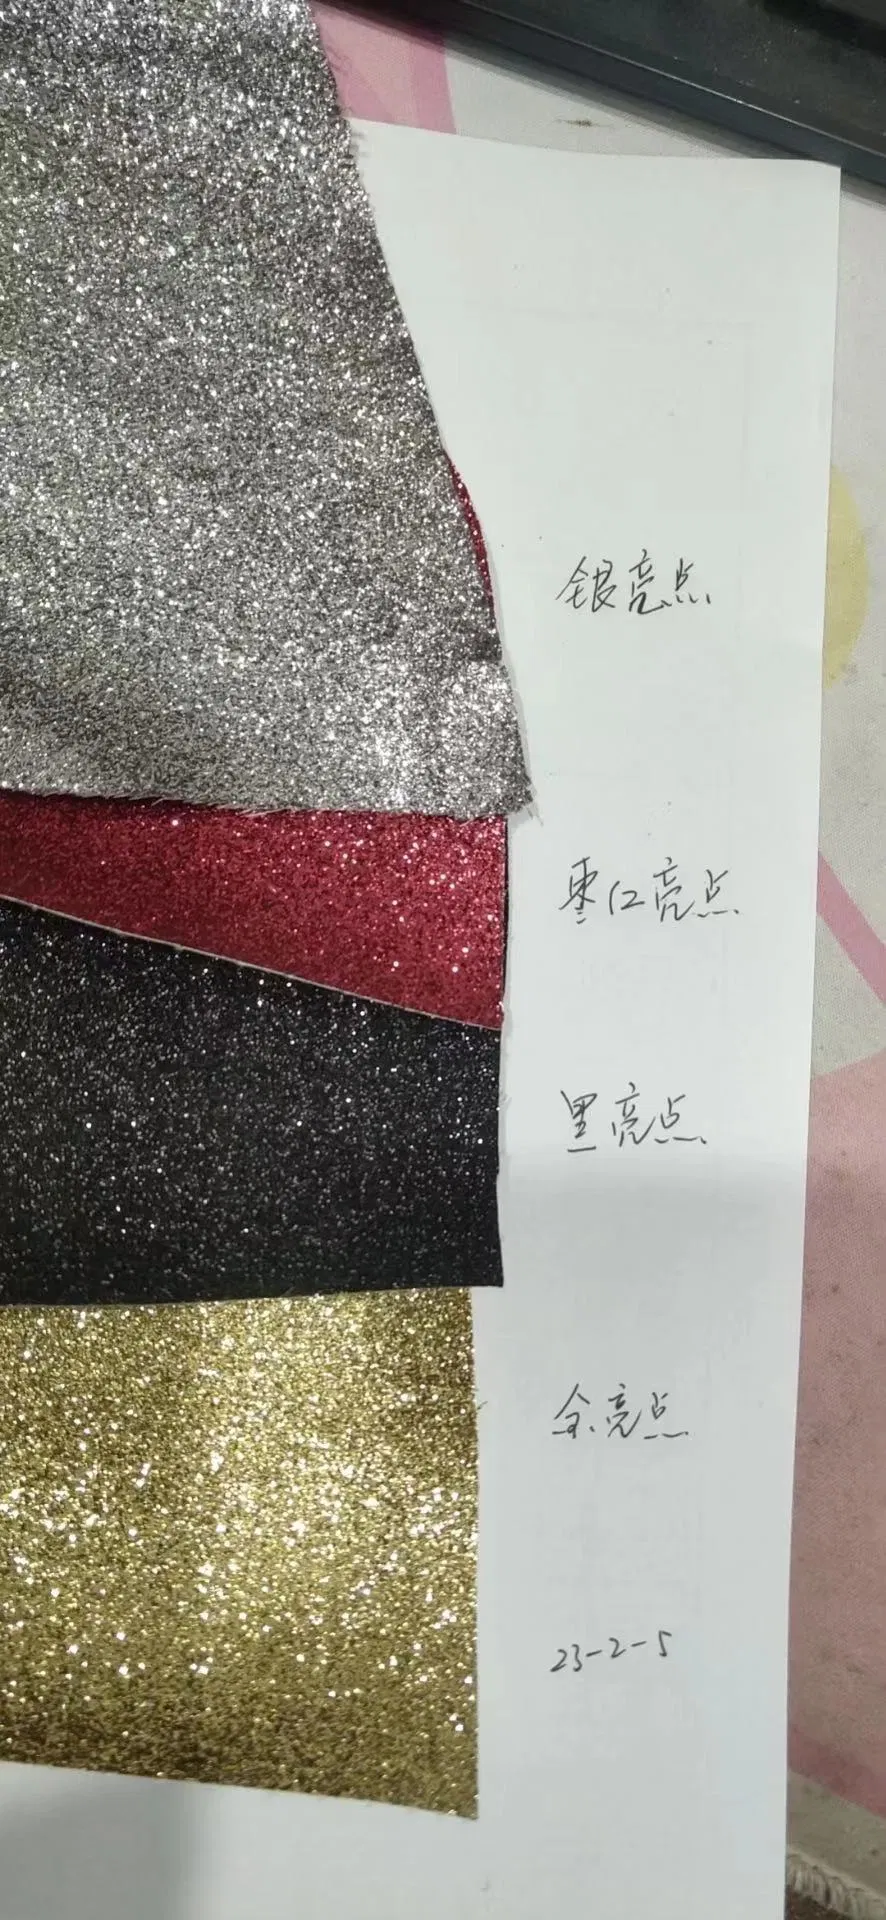 银亮点
枣红亮点
黑亮点
金亮点
23-2-5